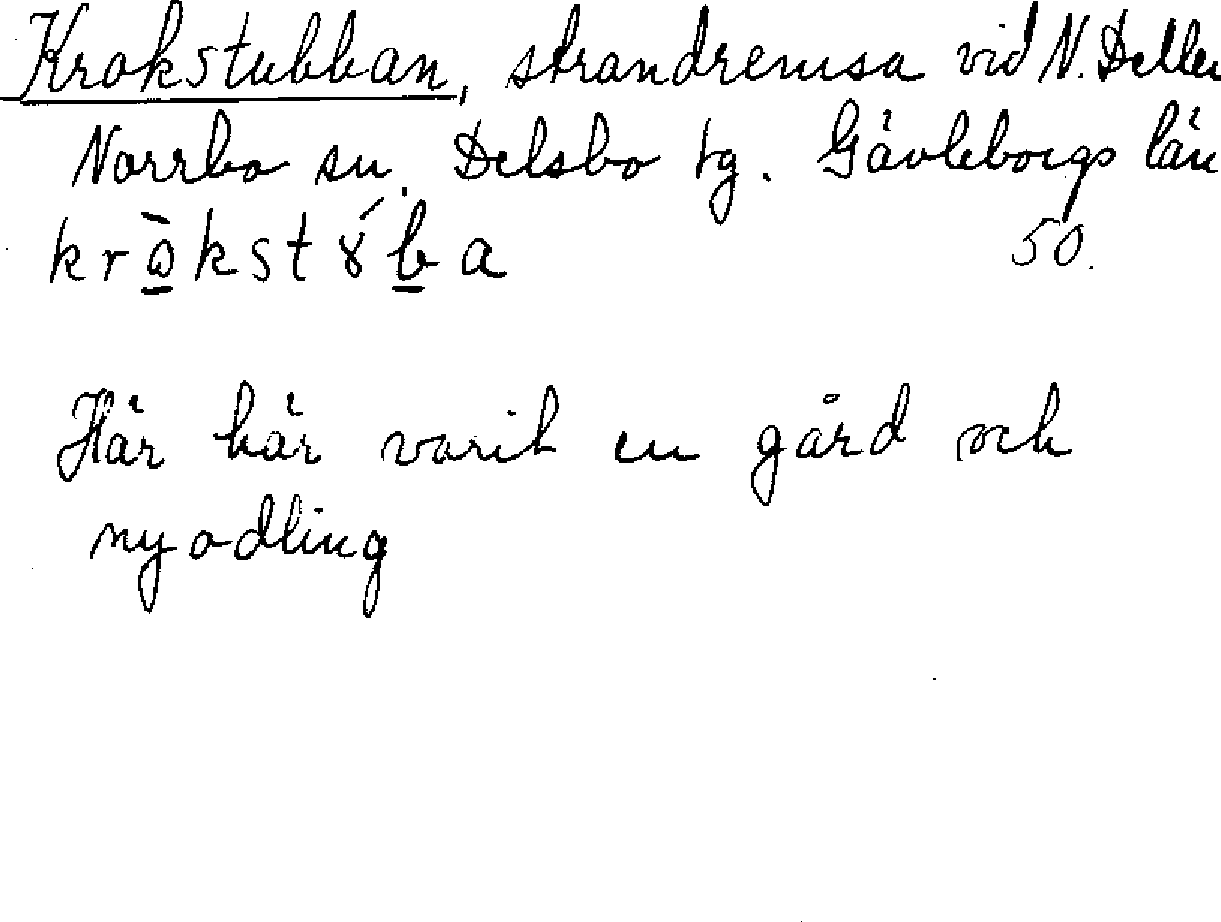 Krokstubban, strandremsa vid N. Dellen
Norrbo sn. Delsbo tg. Gävleborgs län
krò̱kstɤ́ḇa 50.
Här här varit en gård och
nyodling